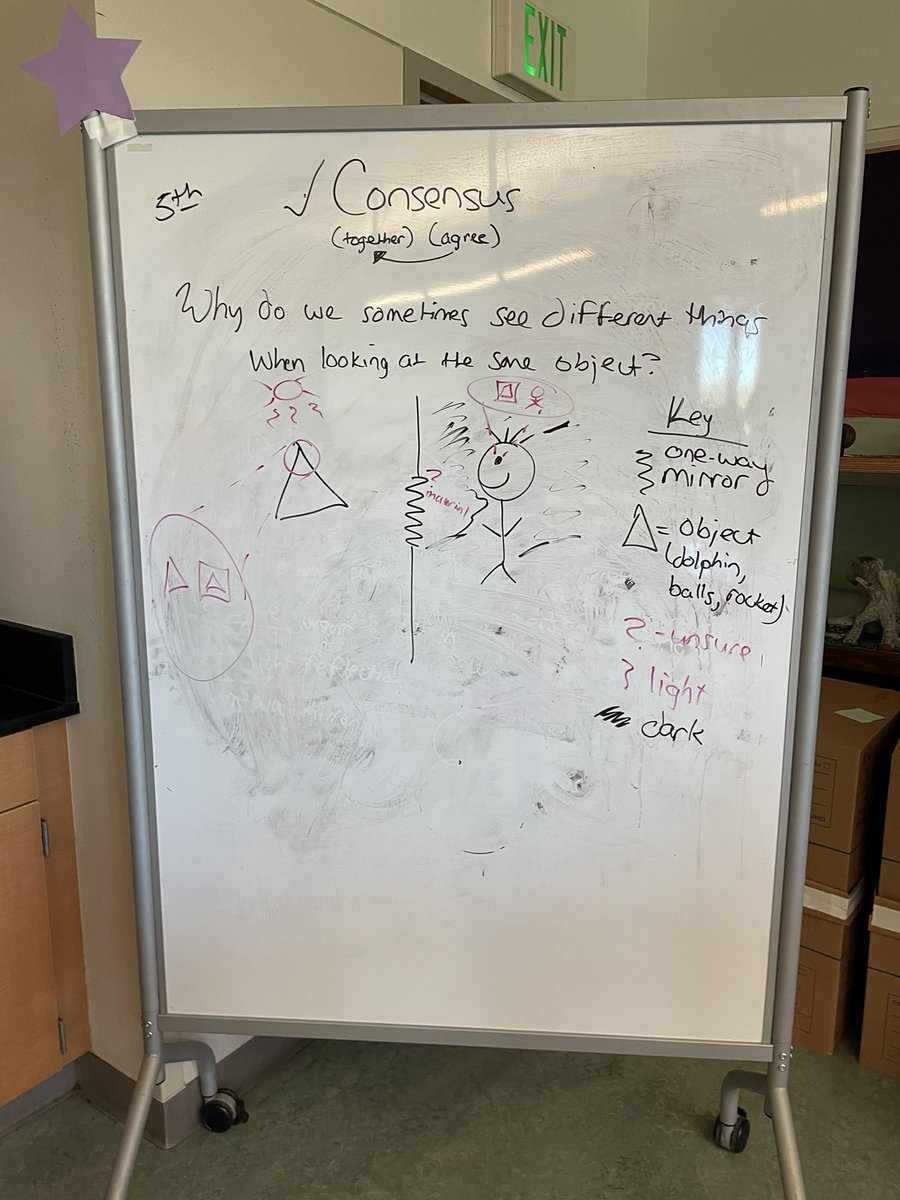 EXIT
5th
√ Consensus
(together) (agree)
Why do we sometimes see different things
when looking at the same object?
Key
one-way
mirror
? material
= object
(dolphin,
balls, rocket)
? - unsure
light
dark